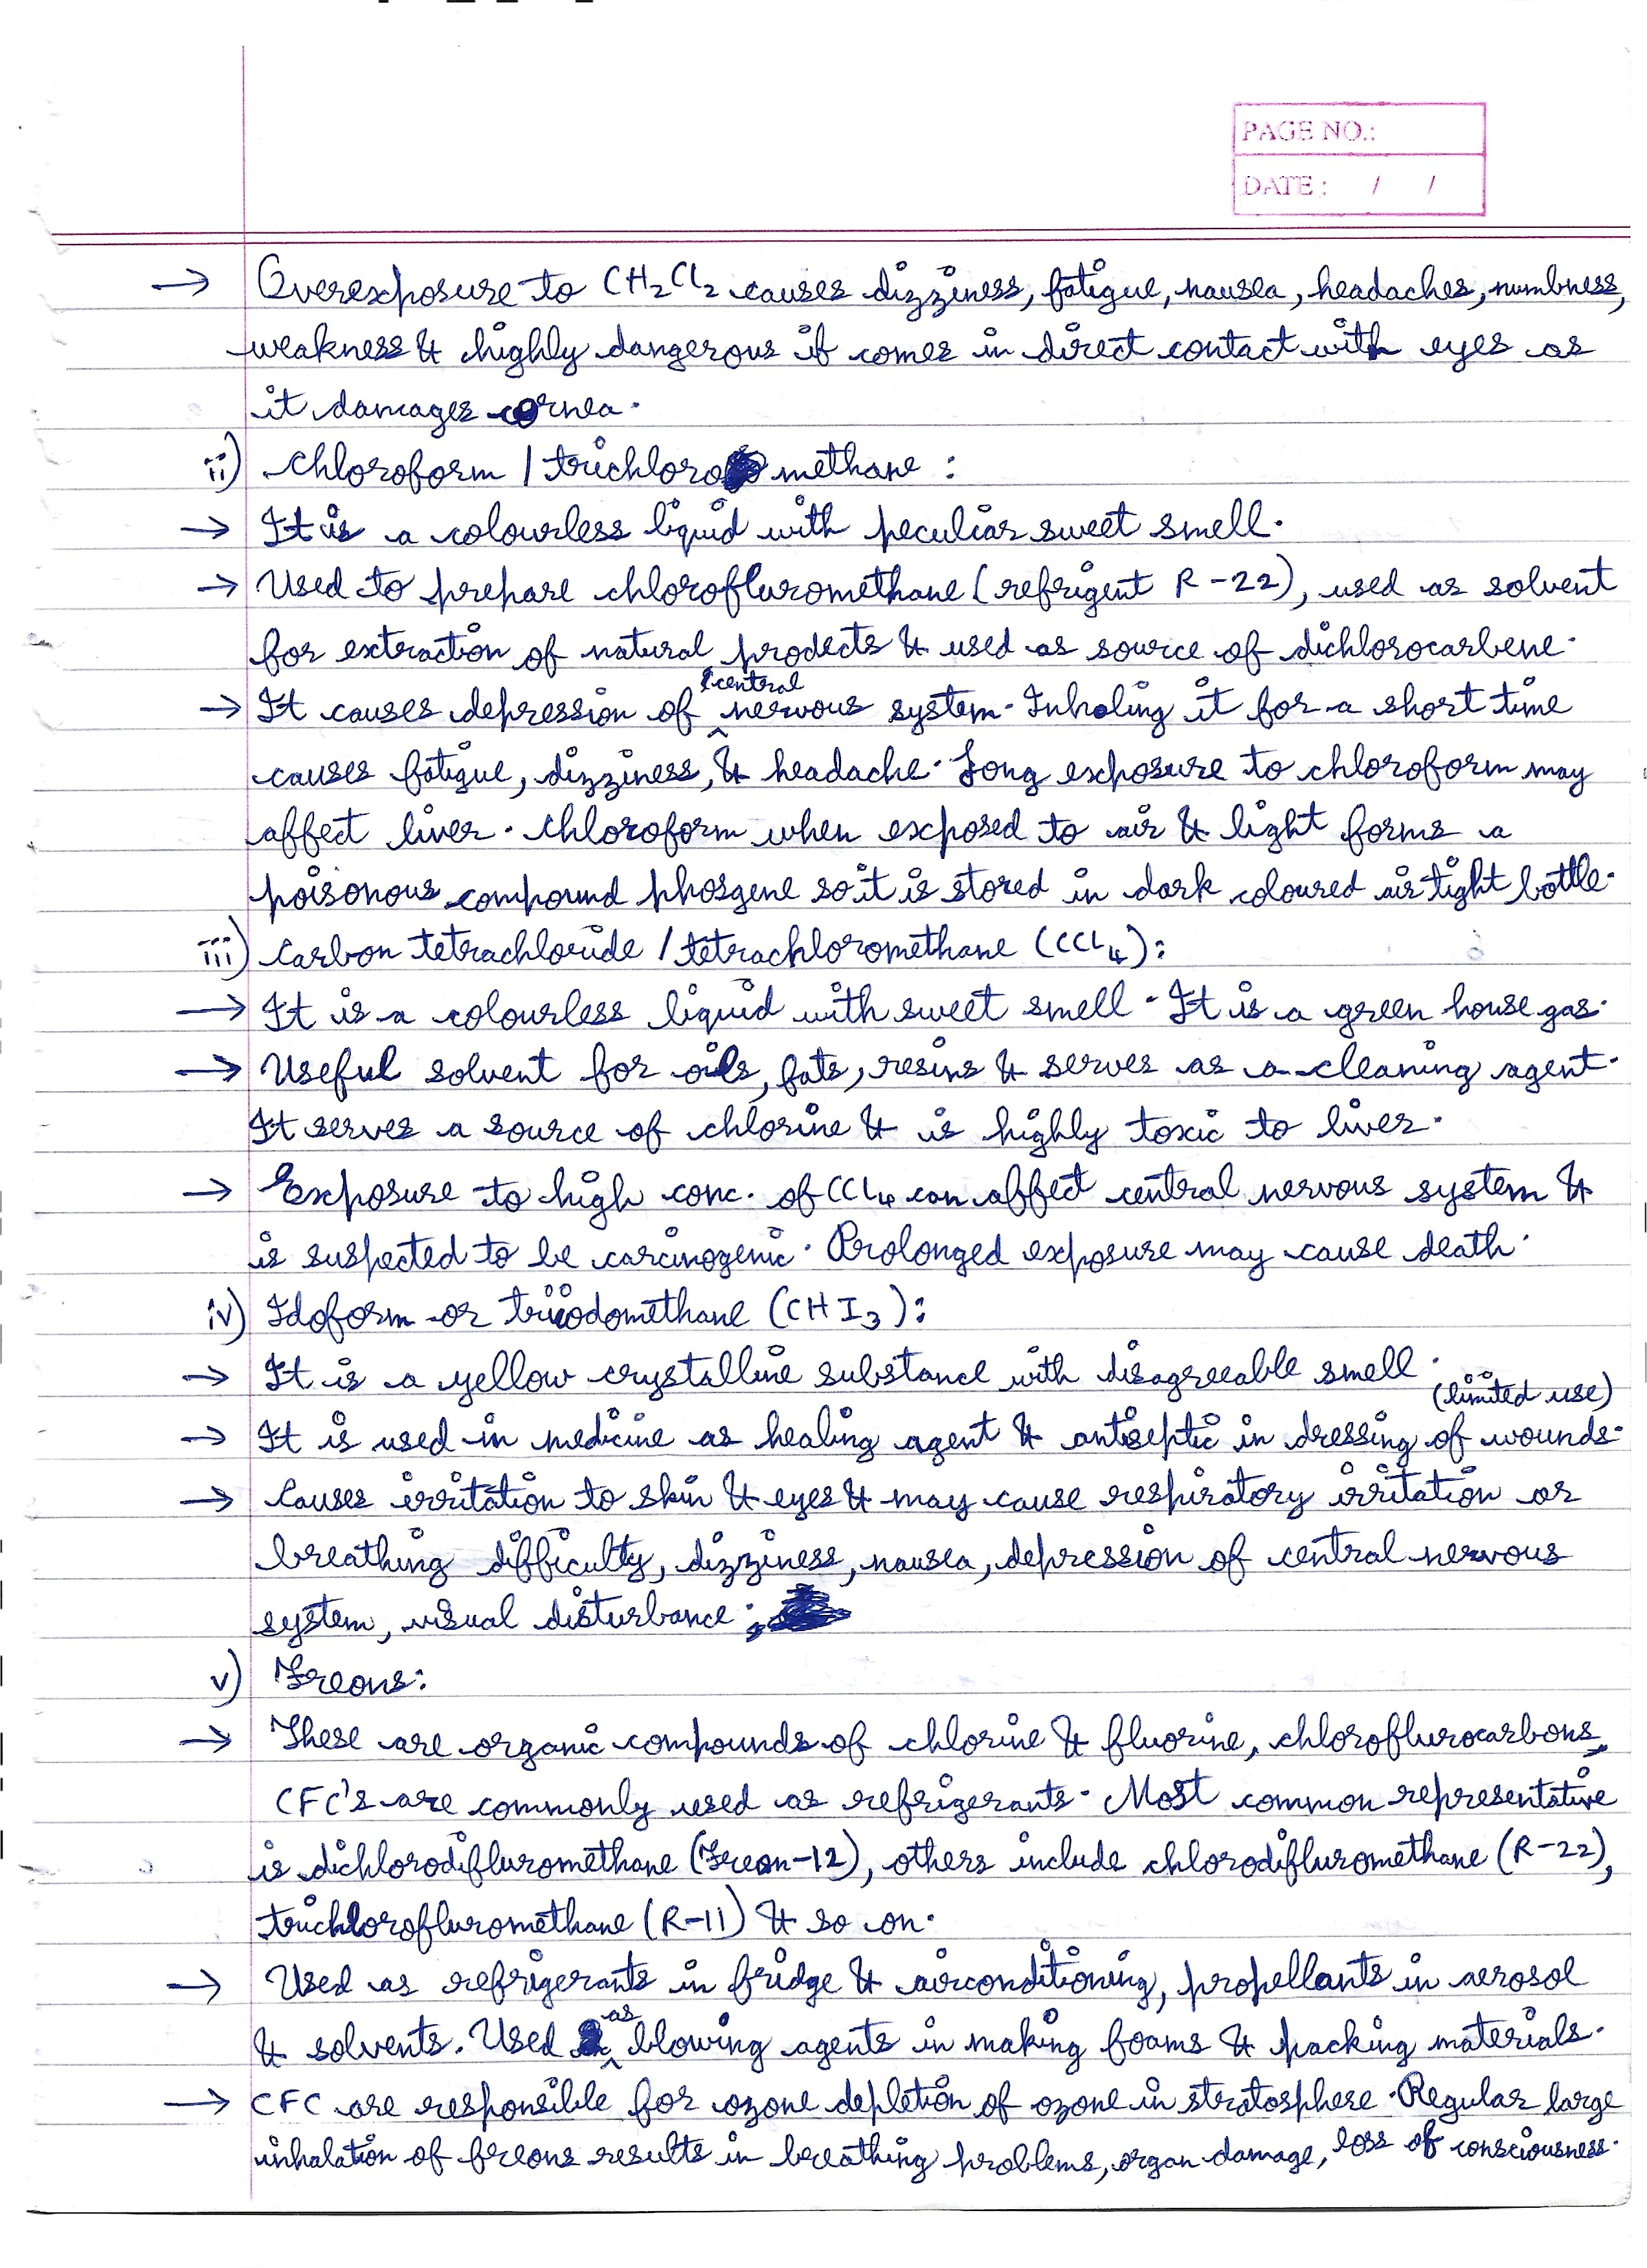 PAGE NO.:
DATE : / /
→ Overexposure to CH₂Cl₂ causes dizziness, fatigue, nausea, headaches, numbness,
weakness & highly dangerous if comes in direct contact with eyes as
it damages cornea.
ii) Chloroform / trichloro methane :
→ It is a colourless liquid with peculiar sweet smell.
→ Used to prepare chlorofluromethane (refrigent R-22), used as solvent
for extraction of natural prodects & used as source of dichlorocarbene.
→ It causes depression of central nervous system. Inhaling it for a short time
causes fatigue, dizziness, & headache. Long exposure to chloroform may
affect liver. Chloroform when exposed to air & light forms a
poisonous compound phosgene so it is stored in dark coloured air tight bottle.
iii) Carbon tetrachloride / tetrachloromethane (CCl₄):
→ It is a colourless liquid with sweet smell. It is a green house gas.
→ Useful solvent for oils, fats, resins & serves as a cleaning agent.
It serves a source of chlorine & is highly toxic to liver.
→ Exposure to high conc. of CCl₄ can affect central nervous system &
is suspected to be carcinogenic. Prolonged exposure may cause death.
iv) Idoform or triiodomethane (CHI₃):
→ It is a yellow crystalline substance with disagreeable smell.
(limited use)
→ It is used in medicine as healing agent & antiseptic in dressing of wounds.
→ Causes irritation to skin & eyes & may cause respiratory irritation or
breathing difficulty, dizziness, nausea, depression of central nervous
system, visual disturbance.
v) Freons:
→ These are organic compounds of chlorine & fluorine, chloroflurocarbons,
CFC's are commonly used as refrigerants. Most common representative
is dichlorodifluromethane (Freon-12), others include chlorodifluromethane (R-22),
trichlorofluromethane (R-11) & so on.
→ Used as refrigerants in fridge & airconditioning, propellants in aerosol
& solvents. Used as blowing agents in making foams & packing materials.
→ CFC are responsible for ozone depletion of ozone in stratosphere. Regular large
inhalation of freons results in breathing problems, organ damage, loss of consciousness.